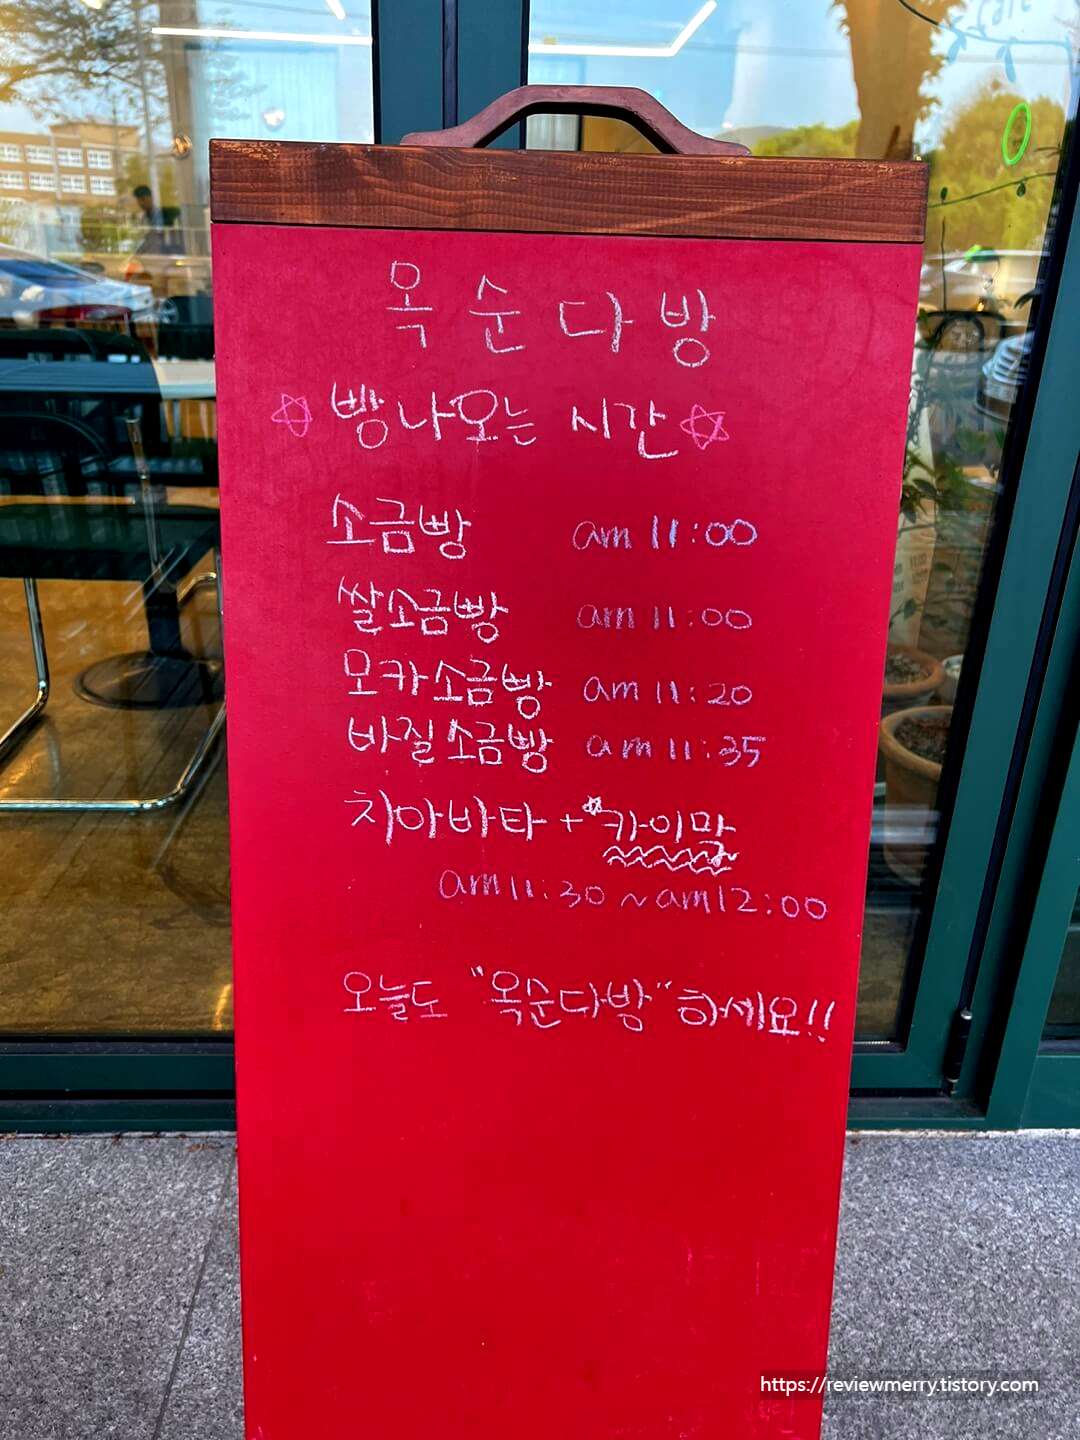 옥순다방
☆빵나오는 시간☆
소금빵 am 11:00
쌀소금빵 am 11:00
모카소금빵 am 11:20
바질소금빵 am 11:35
치아바타 + ☆카이막
am 11:30 ~ am 12:00
오늘도 "옥순다방" 하세요!!
https://reviewmerry.tistory.com